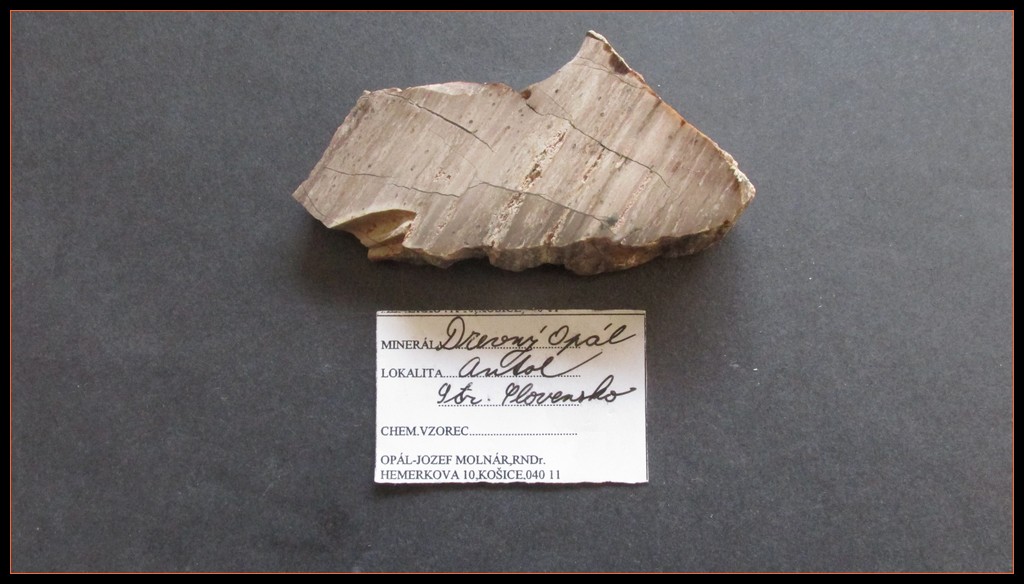 MINERÁL Drevný Opál
LOKALITA Antol
Str. Slovensko
CHEM.VZOREC
OPÁL-JOZEF MOLNÁR,RNDr.
HEMERKOVA 10,KOŠICE,040 11